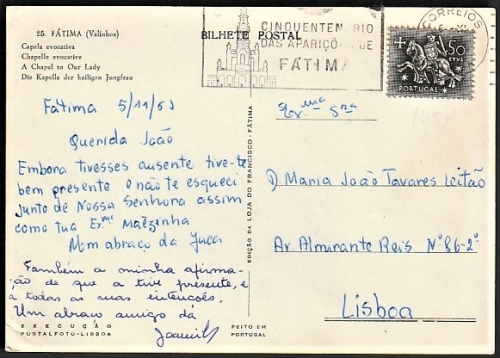 25. FÁTIMA (Valinhos)
Capela evocativa
Chapelle evocative
A Chapel to Our Lady
Die Kapelle der heiligen Jungfrau
BILHETE POSTAL
CINQUENTENÁRIO
DAS APARIÇÕES DE
FÁTIMA
CORREIOS
50
CTVS
PORTUGAL
Fátima 5/11/63
Querida João
Embora tivesses ausente tive-te
bem presente e não te esqueci
junto de Nossa Senhora assim
como tua Ex.ma Mãezinha
Mom abraço da
Também a minha afirma-
ção de que a tive presente, e
a todas as suas intenções.
Um abraço amigo da
EXECUÇÃO
FOSTALFOTO-LISBOA
EDIÇÃO DA LOJA DO FRANCISCO - FÁTIMA
FEITO EM
PORTUGAL
Ex.ma Sra
D Maria João Tavares Leitão
Av. Almirante Reis Nº 86-2º
Lisboa